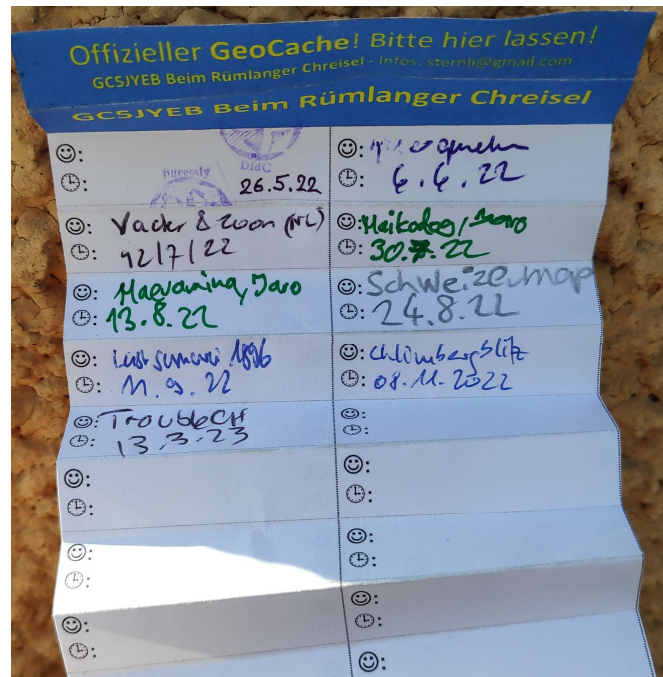 Offizieller GeoCache! Bitte hier lassen!
GC5JYEB Beim Rümlanger Chreisel - Infos: sternli@gmail.com
GC5JYEB Beim Rümlanger Chreisel
DfdC
puressly
26.5.22
6.6.22
Vader & Zoon (NL)
12/7/22
30.7.22
Jaro
13.8.22
Schweizermap
24.8.22
1896
11.9.22
Chlimbergblitz
08.11.2022
TroubleCH
13.3.23